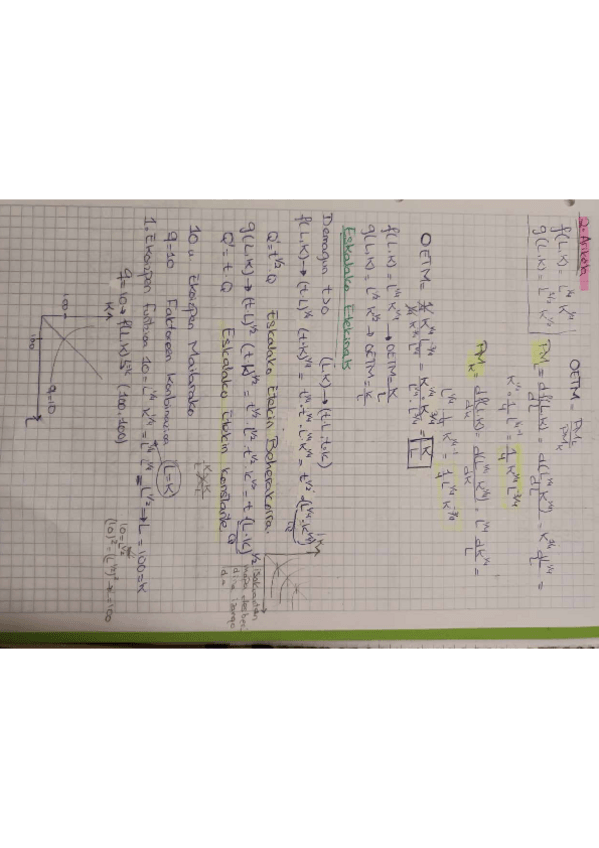 2. Ariketa
f(L,K) = L^1/4 K^1/4
g(L,K) = L^1/2 K^1/2
OETM = PM_L / PM_K
PM_L = df(L,K)/dL = d(L^1/4 K^1/4)/dL = K^1/4 dL^1/4/dL =
K^1/4 · 1/4 L^1/4-1 = 1/4 K^1/4 L^-3/4
PM_K = df(L,K)/dK = d(L^1/4 K^1/4)/dK = L^1/4 dK^1/4/dK =
L^1/4 1/4 K^1/4-1 = 1/4 L^1/4 K^-3/4
OETM = 1/4 K^1/4 L^-3/4 / 1/4 K^-3/4 L^1/4 = K^1/4 · K^3/4 / L^1/4 · L^3/4 = K/L
f(L,K) = L^1/4 K^1/4 → OETM = K/L
g(L,K) = L^1/2 K^1/2 → OETM = K/L
Eskalako Etekinak
Demagun t>0 (L,K) → (t·L, t·K)
f(L,K) → (t·L)^1/4 (t·K)^1/4 = t^1/4 · t^1/4 · L^1/4 K^1/4 = t^1/2 · (L^1/4 · K^1/4)
Q
Q' = t^1/2 Q Eskalako Etekin Beherakorra.
g(L,K) → (t·L)^1/2 (t·K)^1/2 = t^1/2 · L^1/2 · t^1/2 · K^1/2 = t (L·K)^1/2
Q
Q' = t·Q Eskalako Etekin konstante
10 u. Ekoizpen Mailarako
q=10 Faktoreen Konbinazioa L=K
1. Ekoizpen funtzioa 10 = L^1/4 K^1/4 = L^1/4 L^1/4 = L^1/2 → L = 100 = K
q = 10 → f(L,K) (100,100)
10 = L^1/2
(10)^2 = (L^1/2)^2 → L = 100
K
100
100
L
q=10